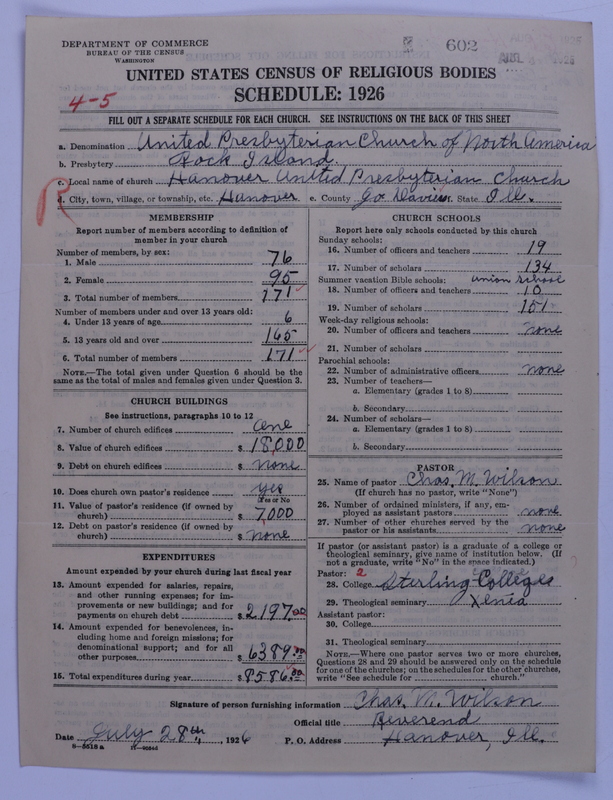 DEPARTMENT OF COMMERCE
BUREAU OF THE CENSUS
WASHINGTON
602
UNITED STATES CENSUS OF RELIGIOUS BODIES
SCHEDULE: 1926
4-5
FILL OUT A SEPARATE SCHEDULE FOR EACH CHURCH. SEE INSTRUCTIONS ON THE BACK OF THIS SHEET
a. Denomination United Presbyterian Church of North America
b. Presbytery Rock Island.
c. Local name of church Hanover United Presbyterian Church
R
d. City, town, village, or township, etc. Hanover e. County Jo Daviess f. State Ill.
MEMBERSHIP
Report number of members according to definition of member in your church
Number of members, by sex:
1. Male 76
2. Female 95
3. Total number of members 171
Number of members under and over 13 years old:
4. Under 13 years of age 6
5. 13 years old and over 165
6. Total number of members 171
NOTE.—The total given under Question 6 should be
same as the total of males and females given under Question 3.
CHURCH BUILDINGS
See instructions, paragraphs 10 to 12
7. Number of church edifices one
8. Value of church edifices $ 18,000
9. Debt on church edifices $ none
10. Does church own pastor's residence yes
(Yes or No
11. Value of pastor's residence (if owned by
church) $ 7,000
12. Debt on pastor's residence (if owned by
church) $ none
EXPENDITURES
Amount expended by your church during last fiscal year
13. Amount expended for salaries, repairs,
and other running expenses; for im-
provements or new buildings; and for
payments on church debt $ 2197.00
14. Amount expended for benevolences, in-
cluding home and foreign missions; for
denominational support; and for all
other purposes $ 6389.00
15. Total expenditures during year $ 8586.00
CHURCH SCHOOLS
Report here only schools conducted by this church
Sunday schools:
16. Number of officers and teachers 19
17. Number of scholars 134
Summer vacation Bible schools: union school
18. Number of officers and teachers 10
19. Number of scholars 151
Week-day religious schools:
20. Number of officers and teachers none
21. Number of scholars
Parochial schools:
22. Number of administrative officers none
23. Number of teachers—
a. Elementary (grades 1 to 8)
b. Secondary
24. Number of scholars—
a. Elementary (grades 1 to 8)
b. Secondary
PASTOR
25. Name of pastor Chas. M. Wilson
(If church has no pastor, write "None")
26. Number of ordained ministers, if any, em-
ployed as assistant pastors none
27. Number of other churches served by the
pastor or his assistants none
If pastor (or assistant pastor) is a graduate of a college or
theological seminary, give name of institution below. (If
not a graduate, write "No" in the space indicated.)
Pastor: 2
28. College Sterling College
29. Theological seminary Xenia
Assistant pastor:
30. College
31. Theological seminary
NOTE.—Where one pastor serves two or more churches,
Questions 28 and 29 should be answered only on the schedule
for one of the churches; on the schedules for the other churches,
write "See schedule for church."
Signature of person furnishing information Chas. M. Wilson
Official title Reverend
Date July 28th, 1926 P. O. Address Hanover, Ill.